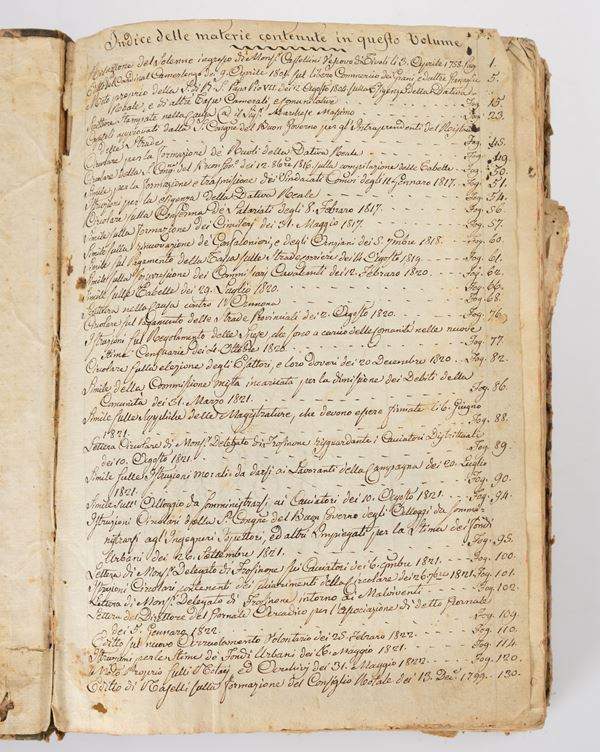 Indice delle materie contenute in questo Volume
Relazione del Solenne ingresso di Mons.r Vescovo di Tivoli li 3. Aprile 1758. Fog. 1.
Editto del Cardinal Camerlengo de' 9. Aprile 1801. sul libero Commercio de' Grani, e d'altre 5.
Moto proprio della S.tà di N. S. Papa Pio VII. dei Luglio 1801. sulla Esigenza della Dativa
Reale, e di altre Tasse Camerali, e Fog. 15.
Scrittura stampata nella Causa Sig.r Marchese Massimo Fog. 23.
Capitoli approvati dalla S. Congne del Buon Governo per gl'Intraprendenti del
delle Strade Fog. 45.
Circolare per la formazione de' Ruoli della Dativa Reale Fog. 49.
Circolare della S. Cong. del B. Gov. dei 12. 8bre 1816. sulla compilazione delle Tabelle Fog. 50.
Simile per la formazione e trasmissione dei Sindacati degli 11 Gennaro 1817. Fog. 51.
Istruzioni per la esigenza della Dativa Reale Fog. 54.
Circolare sulla Conferma de' Salariati degli 8. Febraro 1817. Fog. 56.
Simile sulla formazione dei Cimiterj dei 31. Maggio 1817. Fog. 57.
Simile sulla rinnovazione de' Gonfalonieri, e degli Anziani dei 5. 7mbre 1818. Fog. 60.
Simile sul Pagamento della Tassa sulle Strade dei 14. Agosto 1819. Fog. 61.
Simile sulla soppressione dei Commissarj dei 12. Febraro 1820. Fog. 62.
Simile sulle Tabelle dei 29. Luglio 1820. Fog. 66.
Scrittura nella Causa contro l'Annona Fog. 68.
Circolare sul Pagamento delle Strade Provinciali dei 2. Agosto 1820. Fog. 76.
Istruzioni sul Regolamento delle Spese, che sono a carico delle Comunità nelle nuove
Stime Censuarie dei 4. Ottobre 1820. Fog. 77.
Circolare sulla elezione degli Esattori, e loro doveri dei 20 Decembre 1820. Fog. 82.
Simile della Commissione mista incaricata per la dimissione dei Debiti della
Comunità dei 31. Marzo 1821. Fog. 86.
Simile sulle Suppliche delle Magistrature, che devono essere firmate li 6. Giugno
1821. Fog. 88.
Lettera Circolare di Mons.r Delegato di Frosinone risguardante i Cacciatori Distrettuali
dei 10. Agosto 1821. Fog. 89.
Simile sulle Istruzioni morali da darsi ai Lavoranti della Campagna dei 20. Luglio
1821. Fog. 90.
Simile sull'Alloggio da Somministrarsi ai Cacciatori dei 10. Agosto 1821. Fog. 94.
Istruzioni Circolari della S. Congne del Buon Governo degli Alloggi da Sommi-
nistrarsi agl'Ingegneri Ispettori, ed altri Impiegati per la Stima dei fondi
Urbani dei 26. Settembre 1821. Fog. 95.
Lettera di Mons.r Delegato di Frosinone sui Cacciatori dei 6. 1821. Fog. 100.
Istruzioni Circolari contenenti dei schiarimenti della Circolare dei 26 7bre 1821. Fog. 101.
Lettera di Mons.r Delegato di Frosinone intorno ai Malviventi Fog. 102.
Lettera del Direttore del Giornale Arcadico per l'Associazione di detto Giornale
dei 5. Gennaro 1822. Fog. 109.
Editto sul nuovo Arruolamento Volontario dei 25. Febraro 1822. Fog. 110.
Istruzioni per le Stime de' Fondi Urbani dei 16. Maggio 1821. Fog. 114.
Moto Proprio sulli Notari, ed Archivj dei 31. Maggio 1822. Fog. 120.
Editto di Naselli sulla formazione del Consiglio dei 13. Dec. 1799. 130.